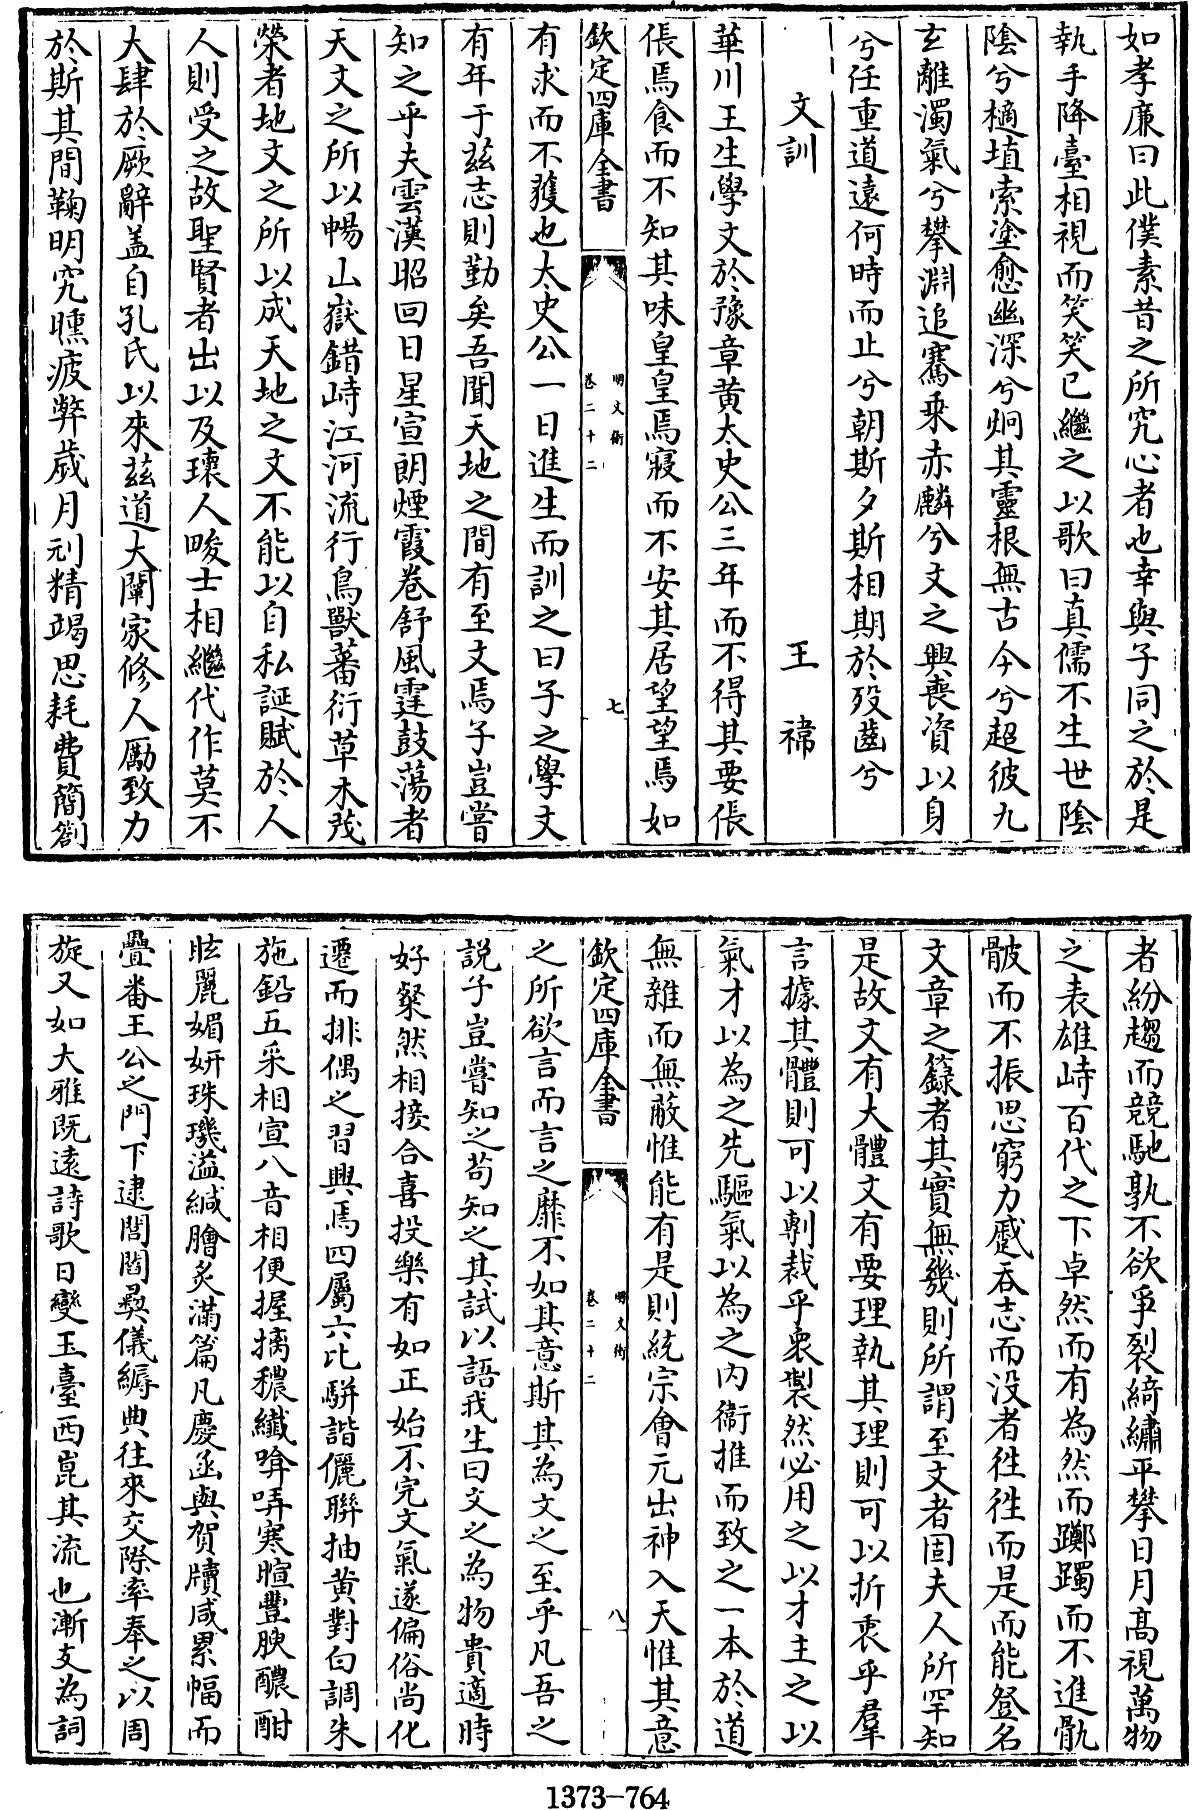 如孝廉曰此僕素昔之所究心者也幸與子同之於是
執手降臺相視而笑笑已繼之以歌曰真儒不生世陰
陰兮擿埴索塗愈幽深兮炯其靈根無古今兮超彼九
玄離濁氣兮攀淵追騫乗赤麟兮文之興喪資以身
兮任重道遠何時而止兮朝斯夕斯相期於歿齒兮
文訓 王禕
華川王生學文於豫章黄太史公三年而不得其要倀
倀焉食而不知其味皇皇焉寢而不安其居望望焉如
欽定四庫全書 明文衡 卷二十二 七
有求而不獲也太史公一日進生而訓之曰子之學文
有年于兹志則勤矣吾聞天地之間有至文焉子豈嘗
知之乎夫雲漢昭回日星宣朗煙霞卷舒風霆鼓蕩者
天文之所以暢山嶽錯峙江河流行鳥獸蕃衍草木茂
榮者地文之所以成天地之文不能以自私誕賦於人
人則受之故聖賢者出以及瓌人畯士相繼代作莫不
大肆於厥辭盖自孔氏以來兹道大闡家修人勵致力
於斯其間鞠明究曛疲弊歲月刓精竭思耗費簡劄
者紛趨而競馳孰不欲爭裂綺繡平攀日月髙視萬物
之表雄峙百代之下卓然而有為然而躑躅而不進骩
骳而不振思窮力蹙吞志而没者往往而是而能登名
文章之籙者其實無幾則所謂至文者固夫人所罕知
是故文有大體文有要理執其理則可以折衷乎羣
言據其體則可以剸裁乎衆製然必用之以才主之以
氣才以為之先驅氣以為之内衛推而致之一本於道
無雜而無蔽惟能有是則統宗會元出神入天惟其意
欽定四庫全書 明文衡 卷二十二 八
之所欲言而言之靡不如其意斯其為文之至乎凡吾之
説子豈嘗知之苟知之其試以語我生曰文之為物貴適時
好粲然相接合喜投樂有如正始不完文氣遂偏俗尚化
遷而排偶之習興焉四屬六比駢諧儷聯抽黄對白調朱
施鉛五采相宣八音相便握摛穠纎啽哢寒暄豐腴醲酣
眩麗媚妍珠璣溢緘膾炙滿篇凡慶函與賀牘咸累幅而
疊番王公之門下逮閭閻彛儀縟典往來交際率奉之以周
旋又如大雅既遠詩歌日變玉臺西崑其流也漸支為詞
1373-764